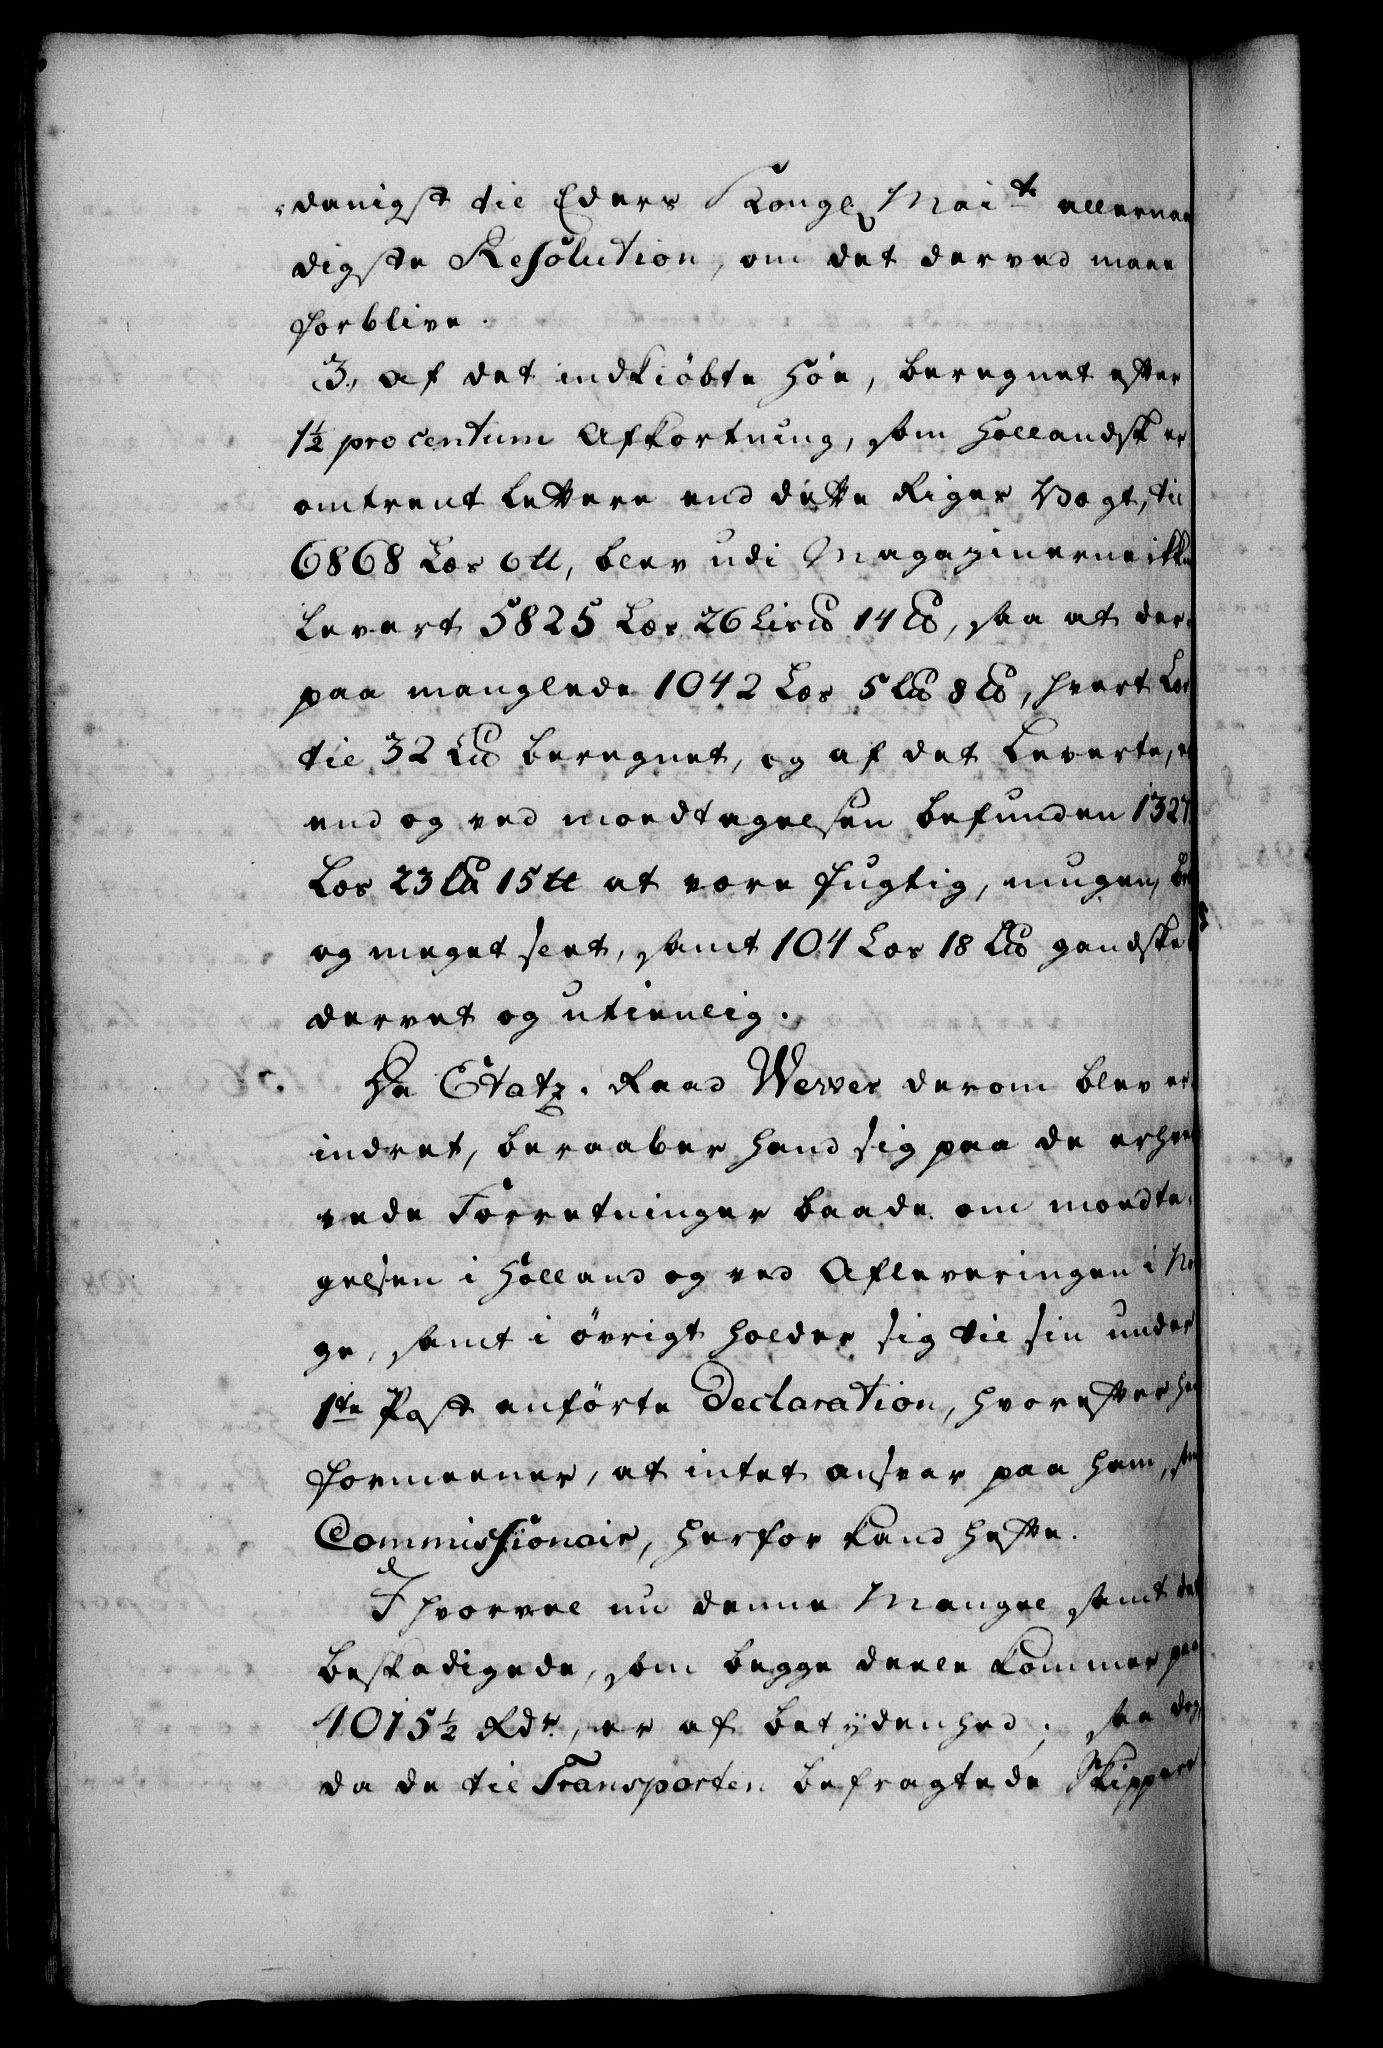 danigst til Eders Kongl. Mait. allernaa
digste Resolution, om det derved maae
forblive.
3, af det indkiöbte Höe, beregnet efter
1½ pro centum Afkortning, som Hollandsk er
omtrent lettere end dette Riges Vægt, til
6868 Læs 0 tt, blev udi Magazinerne ikke
Levert 5825 Læs 26 Lis℔ 14 ℔, saa at der-
paa manglede 1042 Læs 5 L℔ 8 ℔, hvert Læs
til 32 L℔ beregnet, og af det Leverte, er
end og ved modtagelsen befunden 1327
Læs 23 L℔ 15 tt at være fugtig, muggen,
og meget slet, samt 104 Læs 18 L℔ gandske
dervet og utienlig.
Hr Etatz-Raad Wewer derom blev er-
indret, beraaber hand sig paa de erhver
vede Forretninger baade om modta-
gelsen i Holland og ved Afleveringen i Nor
ge, samt i övrigt holder sig til sin under
1te Post anförte Declaration, hvorefter hand
formeener, at intet ansvar paa ham, som
Commissionair, herfor kand hefte.
Ihvorvel nu denne Mangel samt det
beskadigede, som begge deele kommer paa
4015½ Rdr, er af betydenhed; saa dog,
da de til Transporten befragtede Skippere